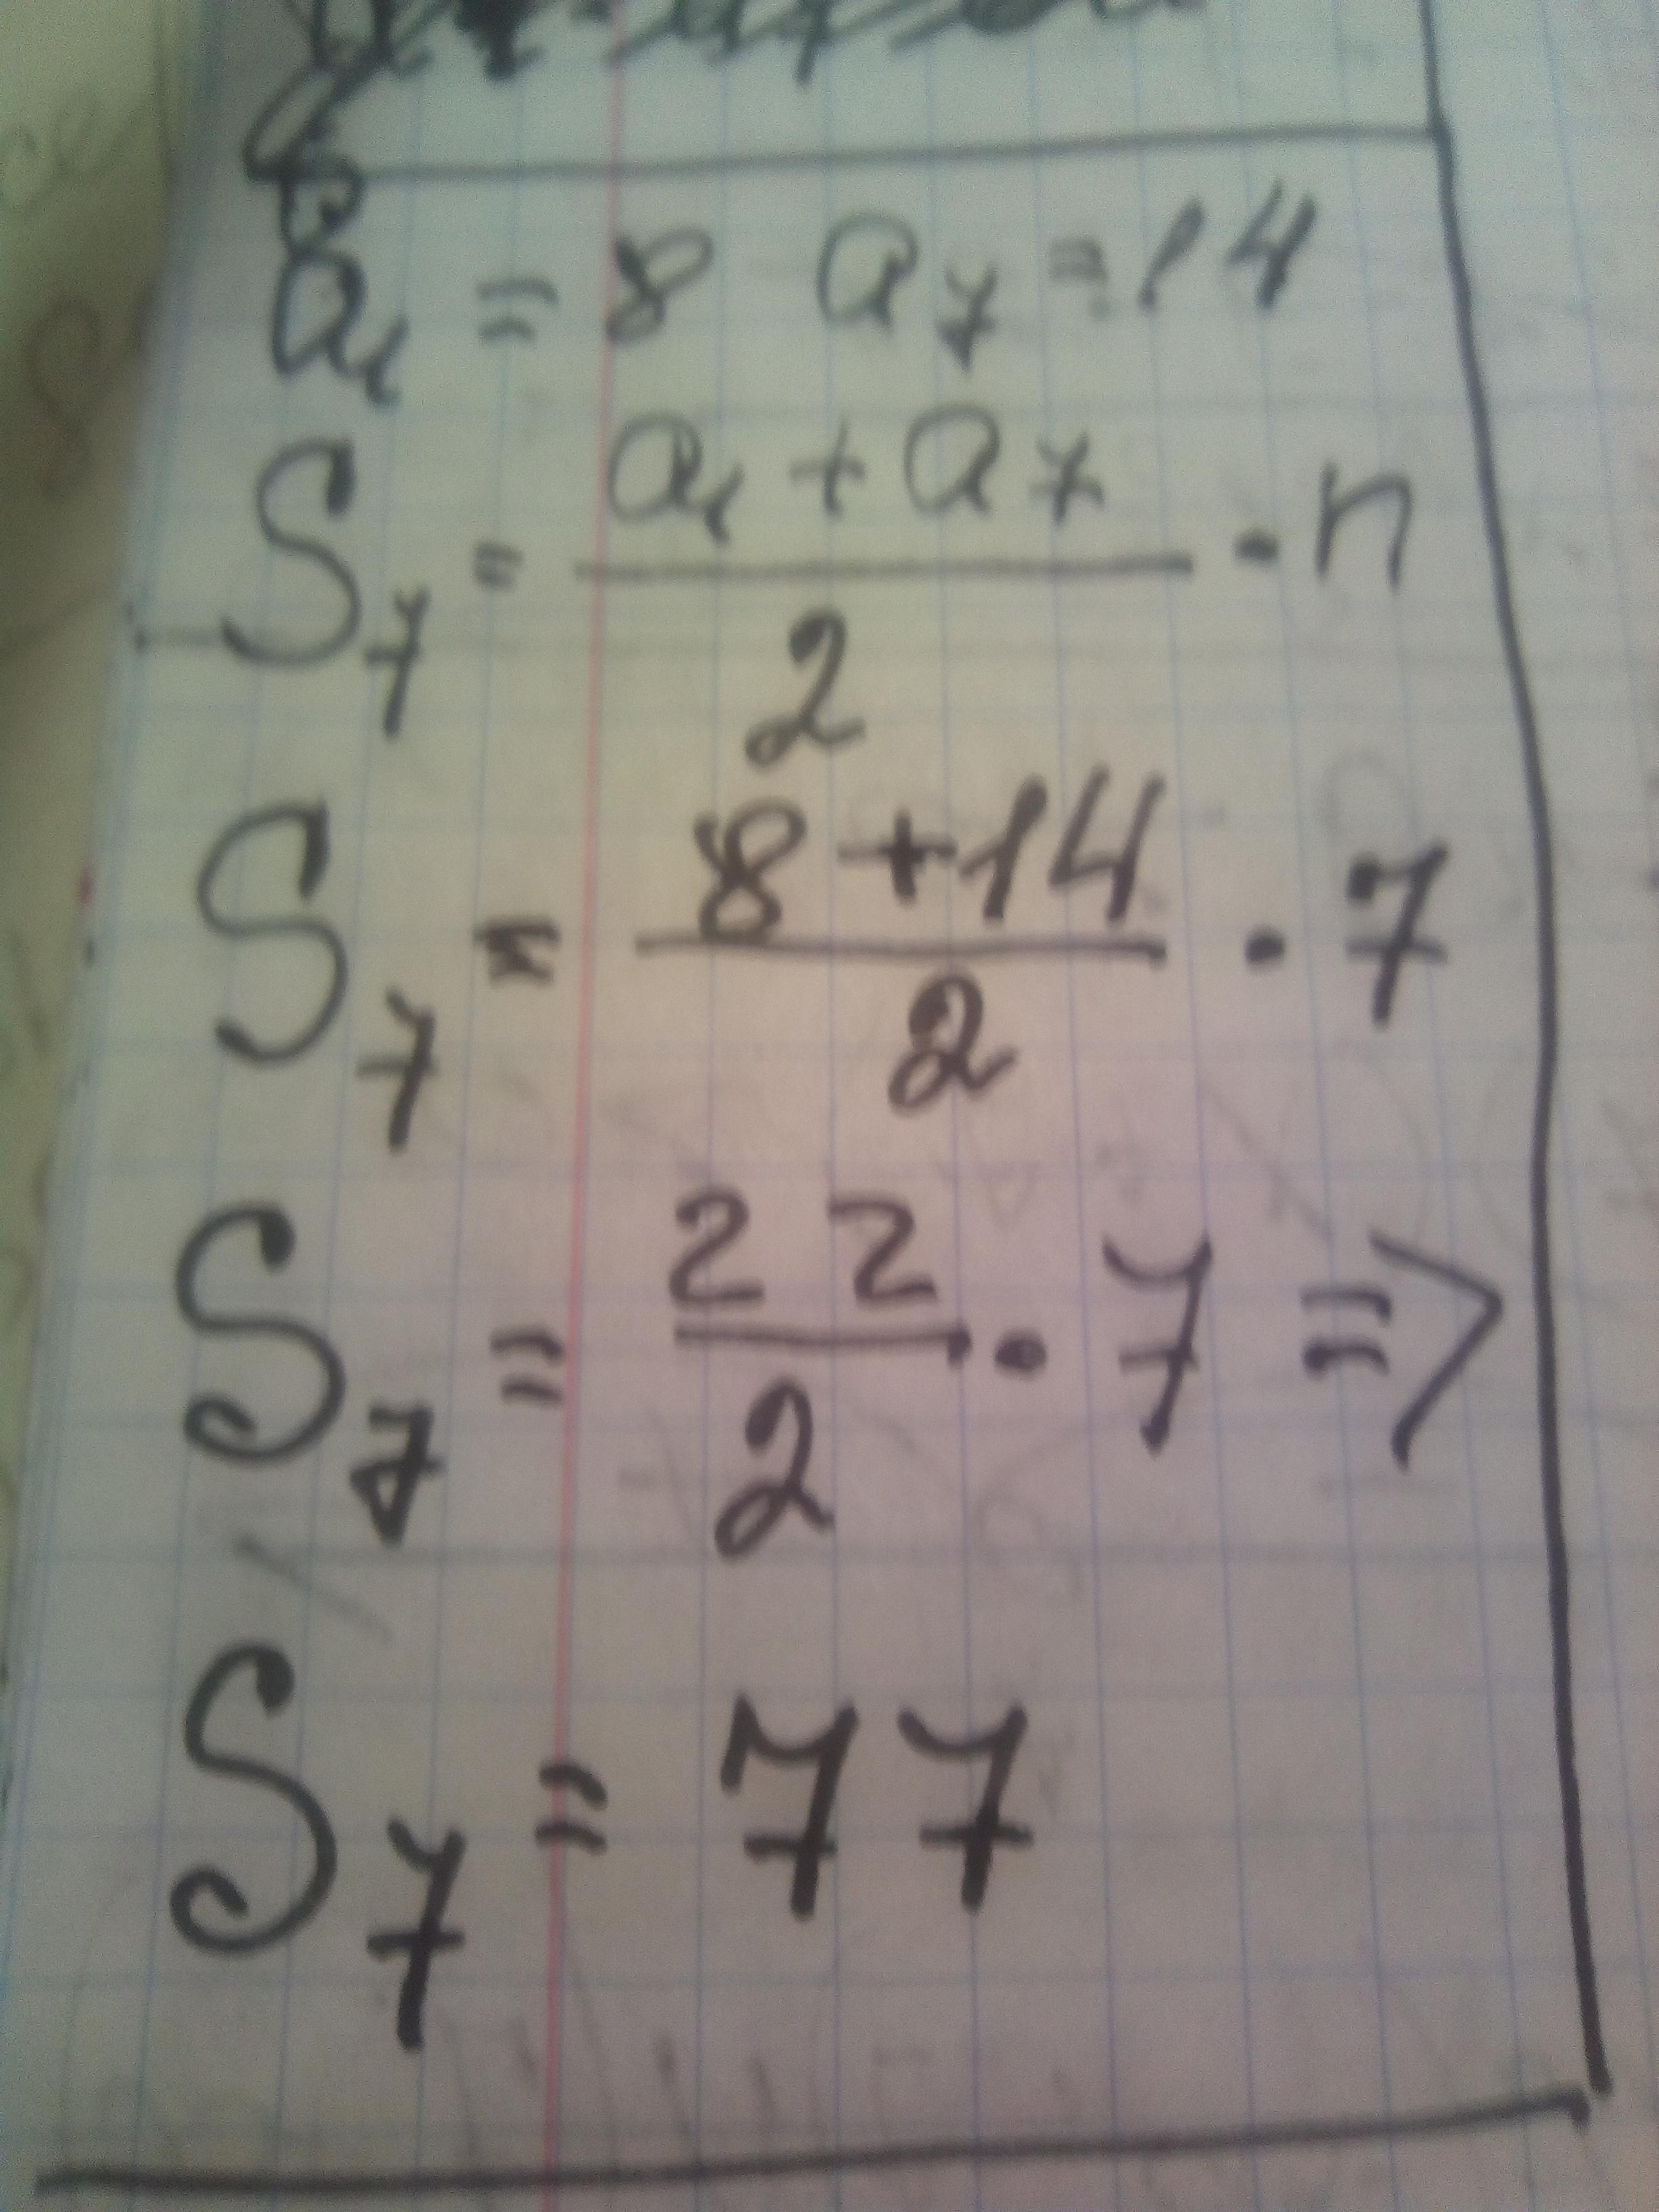 a₁ = 8 a₇ = 14
S₇ = (a₁ + a₇)/2 · n
S₇ = (8 + 14)/2 · 7
S₇ = 22/2 · 7 =>
S₇ = 77